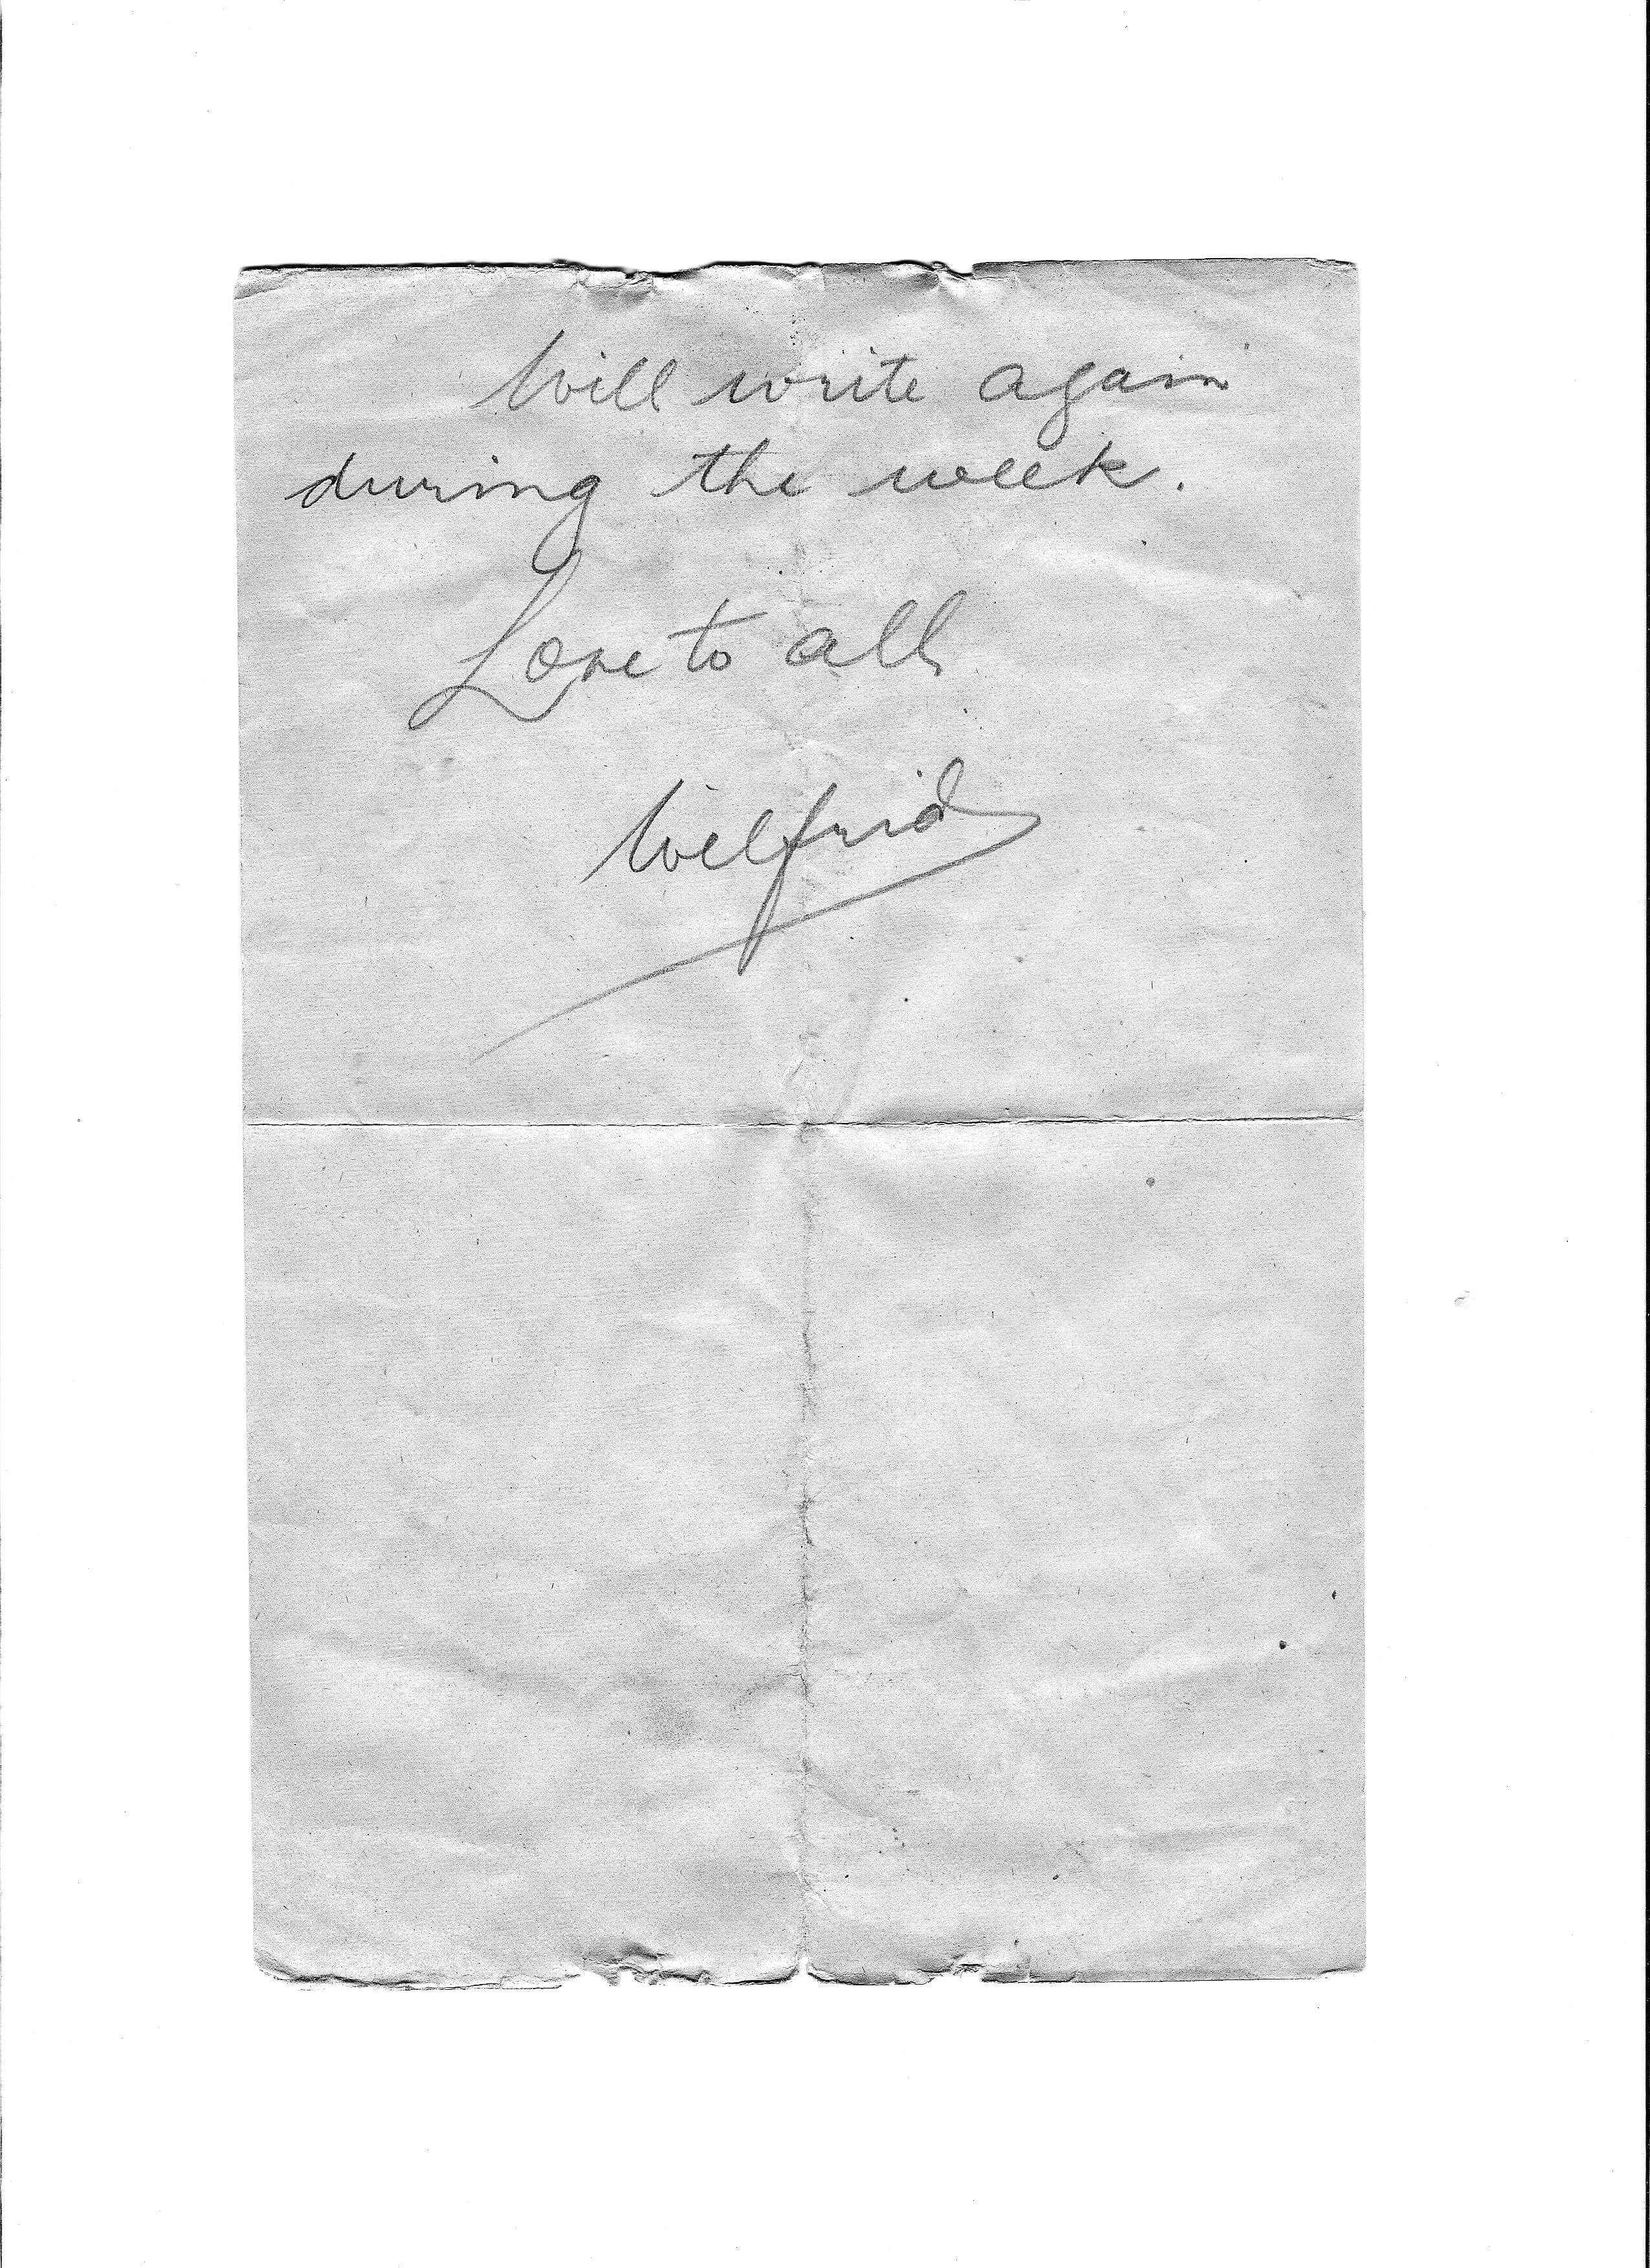 Will write again
during the week.
Love to all
Wilfrid